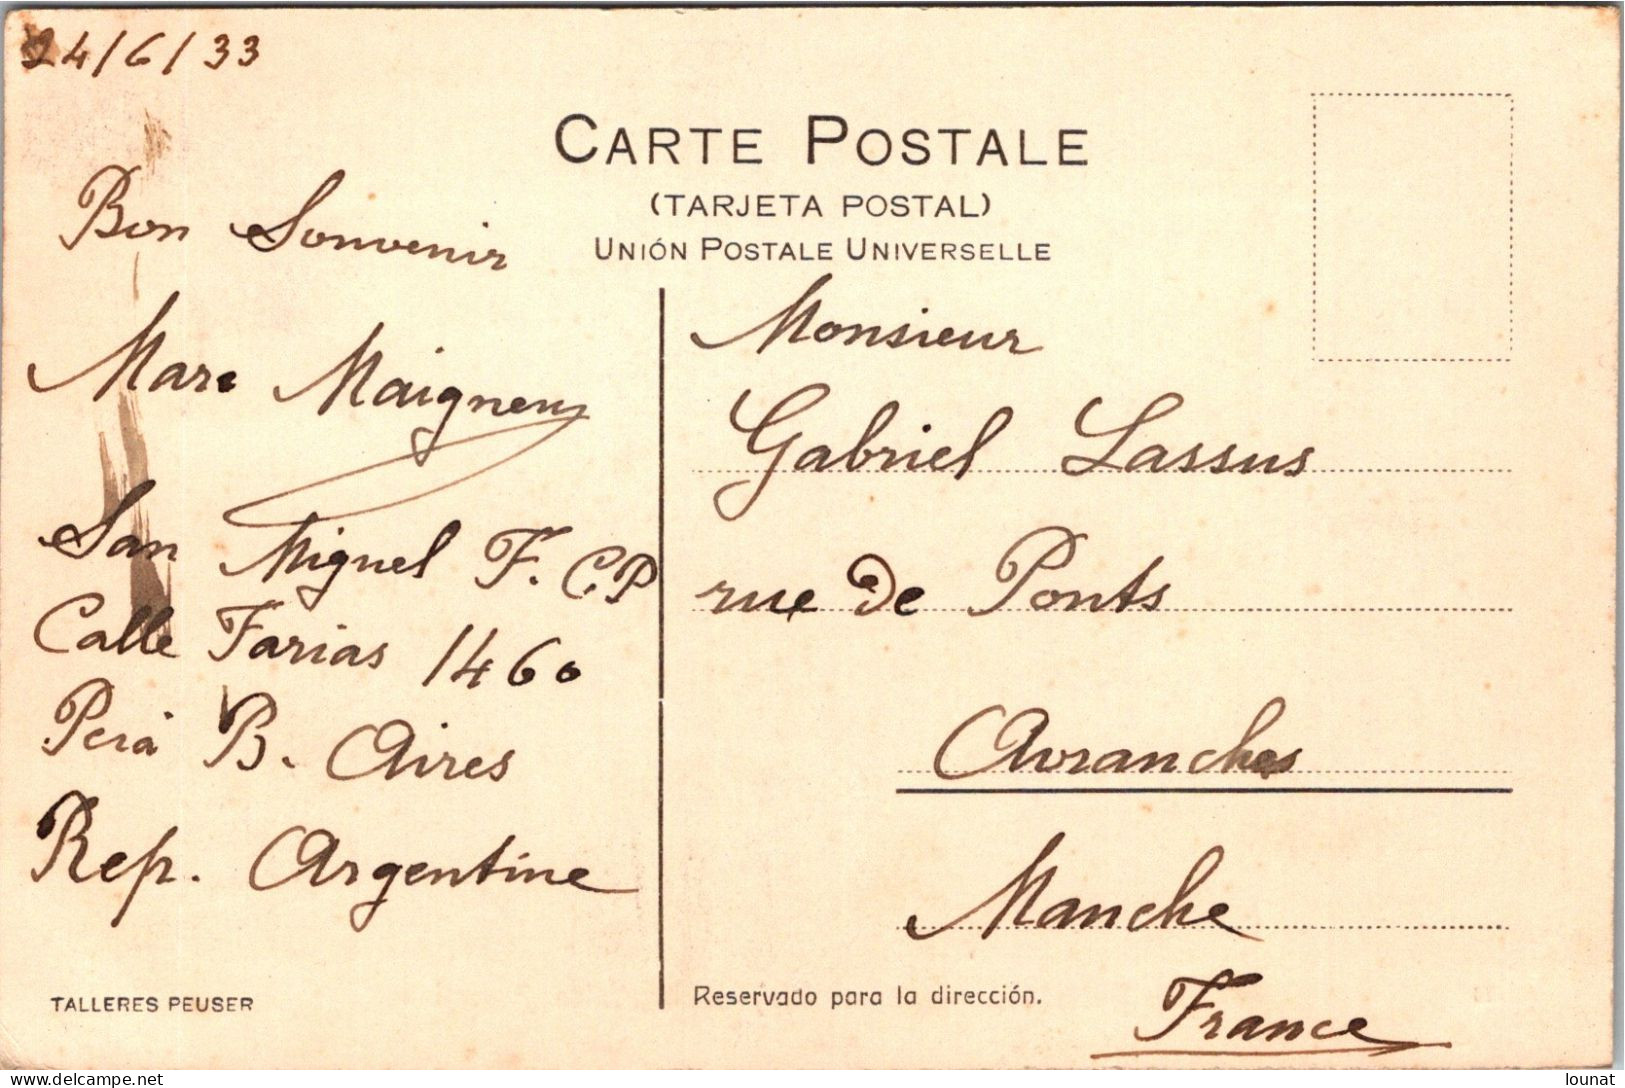 24/6/33
CARTE POSTALE
(TARJETA POSTAL)
UNIÓN POSTALE UNIVERSELLE
Bon Souvenir
Marc Maigneu
San Miguel F.C.P
Calle Farias 1460
B. Aires
Rep. Argentine
TALLERES PEUSER
Monsieur
Gabriel Lassus
rue De Ponts
Avranches
Manche
France
Reservado para la dirección.
delcampe.net
lounat